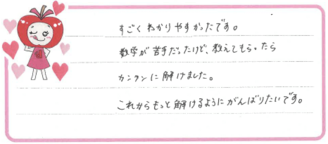 すごくわかりやすかったです。
数学が苦手だったけど、教えてもらったら
カンタンに解けました。
これからもっと解けるようにがんばりたいです。